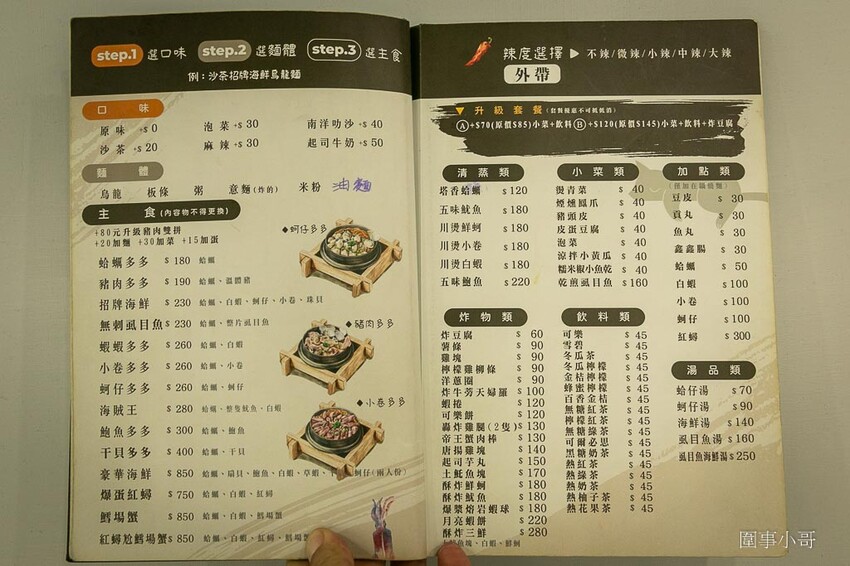 step.1 選口味 step.2 選麵體 step.3 選主食
例：沙茶招牌海鮮烏龍麵
口味
原味 +$0 泡菜 +$30 南洋叻沙 +$40
沙茶 +$20 麻辣 +$30 起司牛奶 +$50
麵體
烏龍 板條 粥 意麵(炸的) 米粉 油麵
主食(內容物不得更換)
+80元升級豬肉雙拼
+20加麵 +30加菜 +15加蛋
蛤蠣多多 $180 蛤蠣
豬肉多多 $190 蛤蠣、溫體豬
招牌海鮮 $230 蛤蠣、白蝦、蚵仔、小卷、珠貝
無刺虱目魚 $230 蛤蠣、整片虱目魚
蝦蝦多多 $260 蛤蠣、白蝦
小卷多多 $260 蛤蠣、小卷
蚵仔多多 $260 蛤蠣、蚵仔
海賊王 $280 蛤蠣、整隻魷魚、白蝦
鮑魚多多 $300 蛤蠣、鮑魚
干貝多多 $400 蛤蠣、干貝
豪華海鮮 $850 蛤蠣、扇貝、鮑魚、白蝦、草蝦、蚵仔(兩人份)
爆蛋紅蟳 $750 蛤蠣、白蝦、紅蟳
鱈場蟹 $850 蛤蠣、白蝦、鱈場蟹
紅蟳尬鱈場蟹 $850 蛤蠣、白蝦、紅蟳、鱈場蟹
◆蚵仔多多
◆豬肉多多
◆小卷多多
辣度選擇 ▶ 不辣/微辣/小辣/中辣/大辣
外帶
▼升級套餐(套餐優惠不可抵低消)
Ⓐ+$70(原價$85)小菜+飲料 Ⓑ+$120(原價$145)小菜+飲料+炸豆腐
清蒸類
塔香蛤蠣 $120
五味魷魚 $180
川燙鮮蚵 $180
川燙小卷 $180
川燙白蝦 $180
五味鮑魚 $220
小菜類
燙青菜 $40
煙燻鳳爪 $40
豬頭皮 $40
皮蛋豆腐 $40
泡菜 $40
涼拌小黃瓜 $40
糯米椒小魚乾 $40
乾煎虱目魚 $160
加點類
(僅加在鍋燒麵)
豆皮 $30
貢丸 $30
魚丸 $30
鑫鑫腸 $30
蛤蠣 $50
白蝦 $100
小卷 $100
蚵仔 $100
紅蟳 $300
炸物類
炸豆腐 $60
薯條 $90
雞塊 $90
檸檬雞柳條 $90
洋蔥圈 $90
炸牛蒡天婦羅 $100
蝦捲 $120
可樂餅 $120
轟炸雞腿(2隻) $130
帝王蟹肉棒 $130
唐揚雞塊 $140
起司芋丸 $150
土魠魚塊 $170
酥炸鮮蚵 $180
酥炸魷魚 $180
爆漿熔岩蝦球 $180
月亮蝦餅 $220
酥炸三鮮 $280
魚塊、白蝦、鮮蚵
飲料類
可樂 $45
雪碧 $45
冬瓜茶 $45
冬瓜檸檬 $45
金桔檸檬 $45
蜂蜜檸檬 $45
百香金桔 $45
無糖紅茶 $45
檸檬紅茶 $45
無糖綠茶 $45
可爾必思 $45
黑糖奶茶 $45
熱紅茶 $45
熱綠茶 $45
熱奶茶 $45
熱柚子茶 $45
熱花果茶 $45
湯品類
蛤仔湯 $70
蚵仔湯 $90
海鮮湯 $140
虱目魚湯 $160
虱目魚海鮮湯 $250
圍事小哥